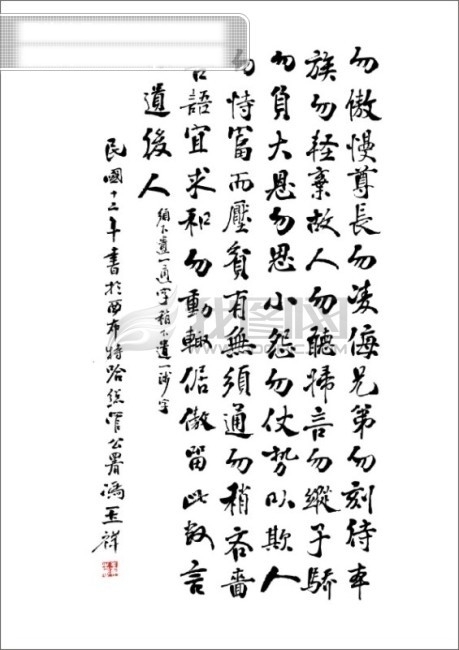 勿傲慢尊長勿凌侮兄弟勿刻待本
族勿輕棄故人勿聽婦言勿縱子驕
勿負大恩勿思小怨勿仗勢以欺人
勿恃富而壓貧有無須通勿稍吝嗇
言語宜求和勿動輒倨傲留此數言
遺後人
下遺一通字稍下遺一涉字
民國十二年書於西布特哈總管公署馮玉祥